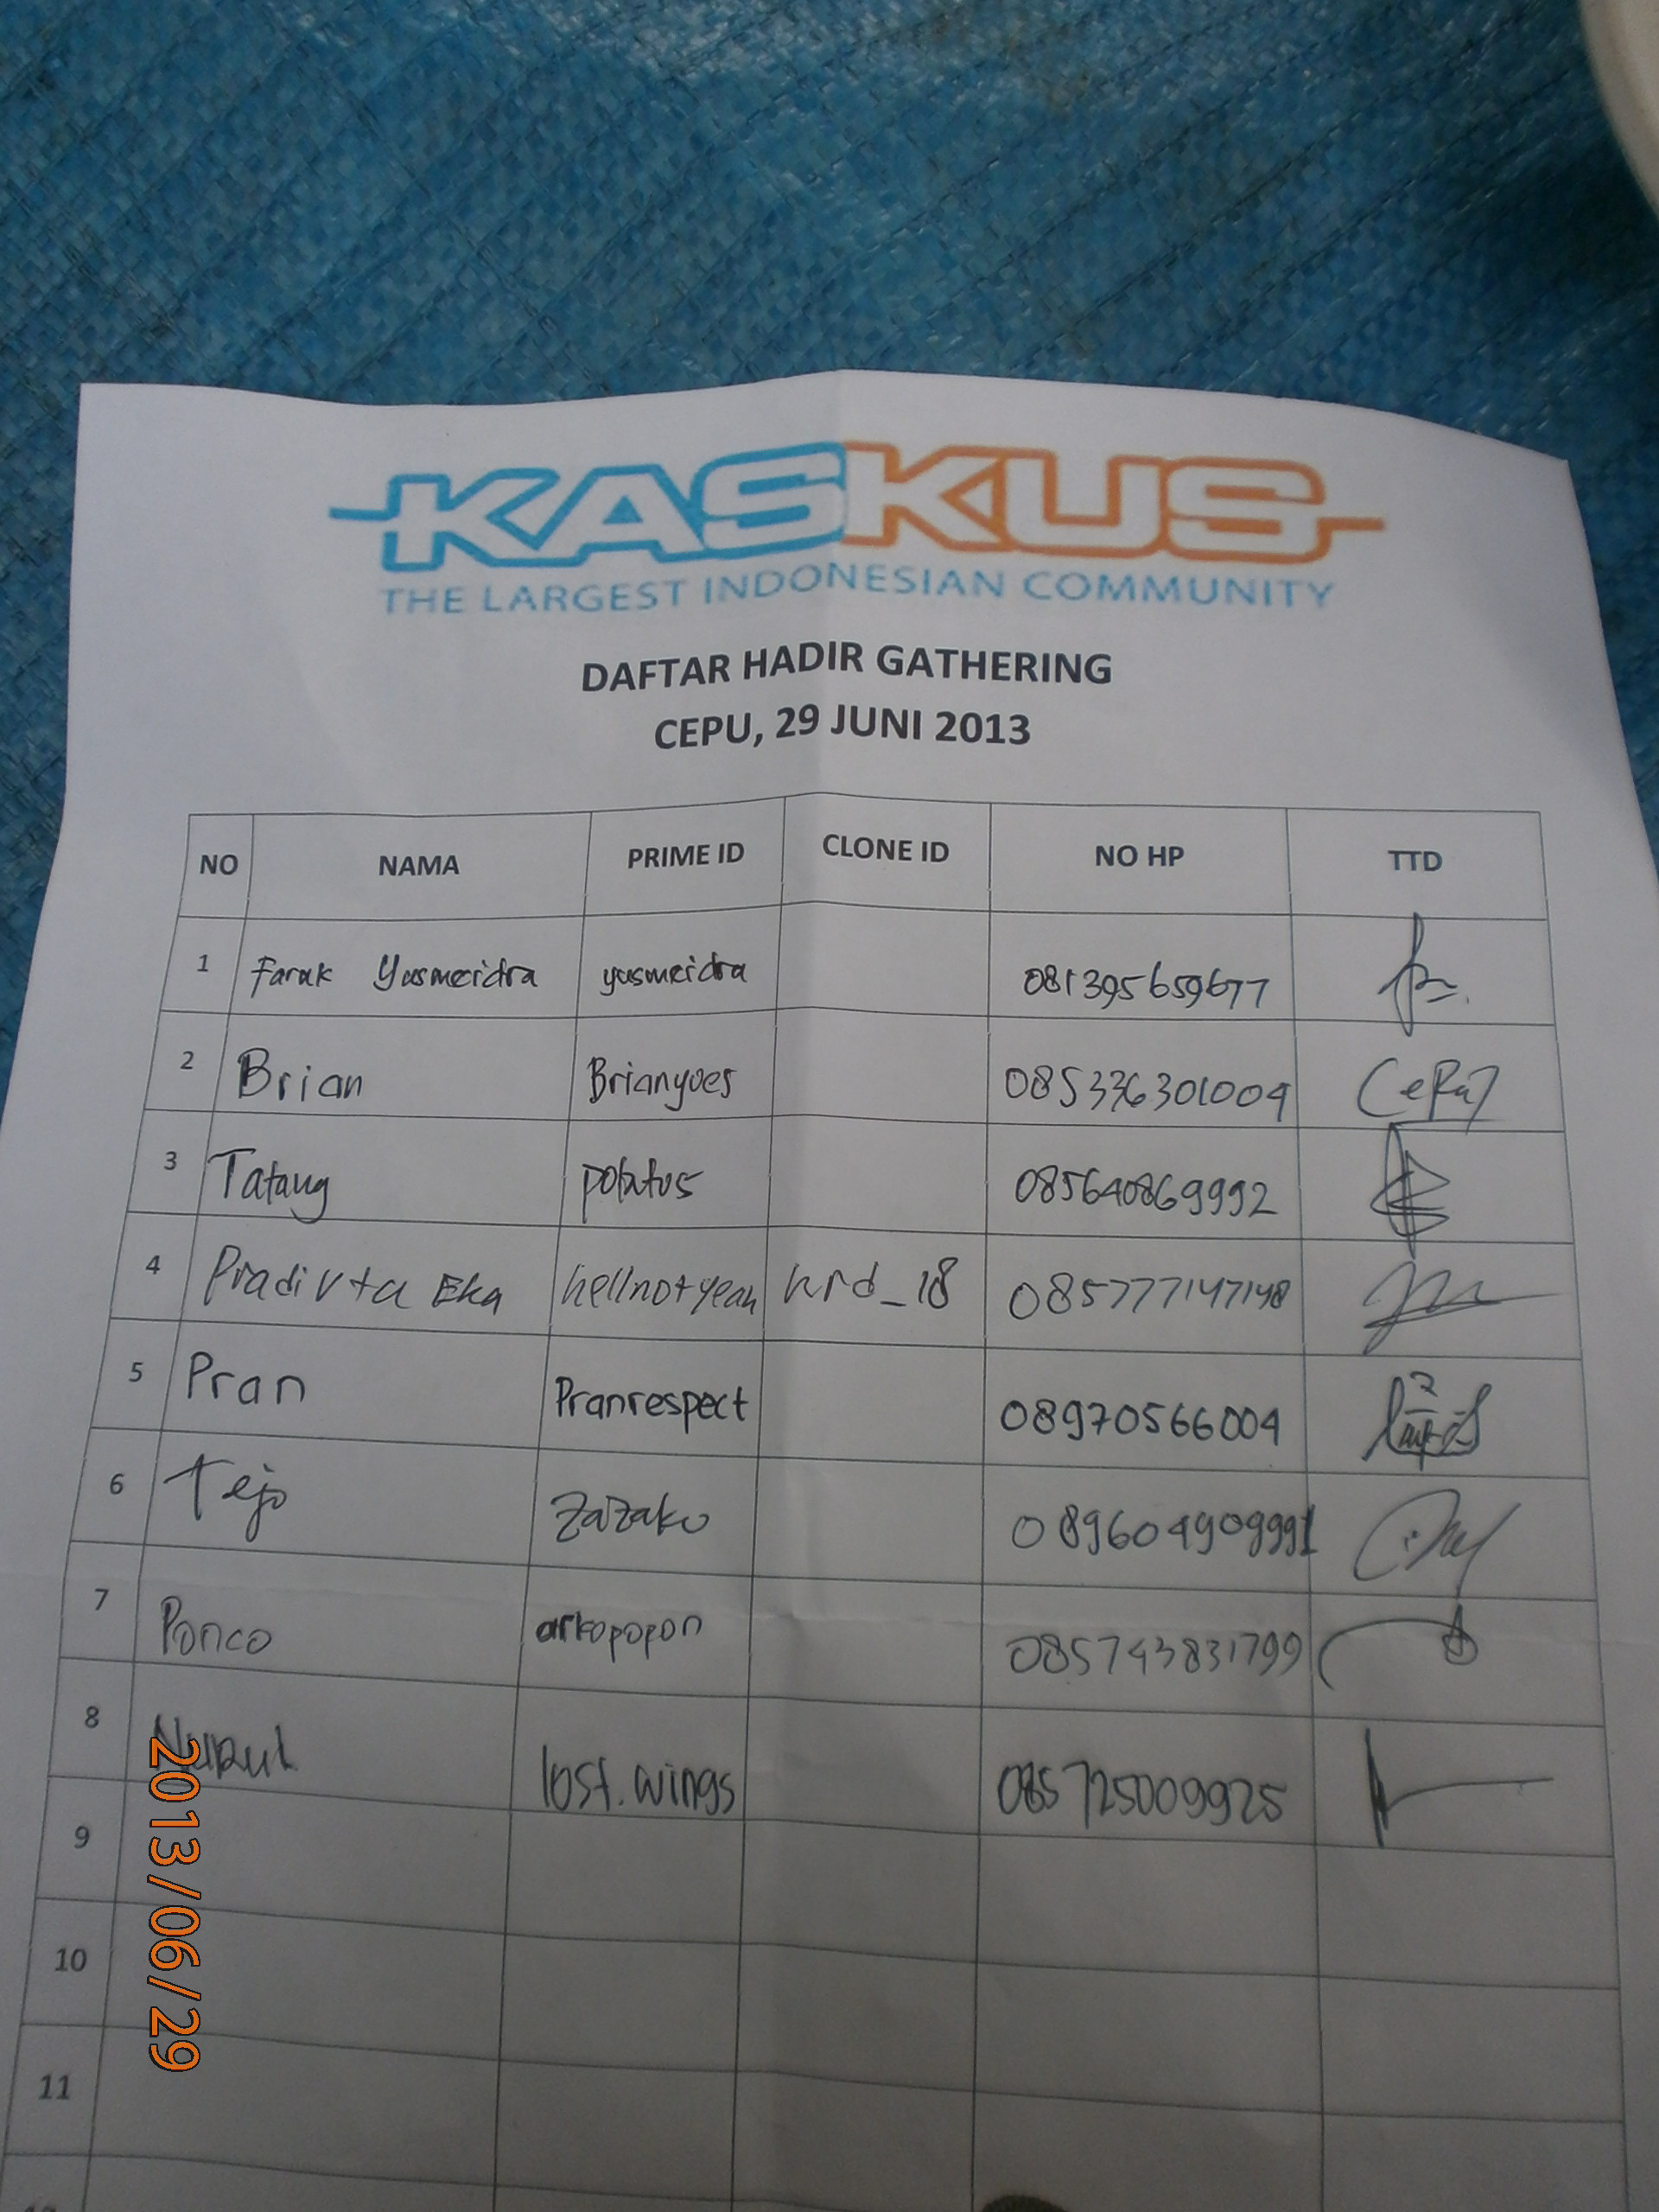 KASKUS
THE LARGEST INDONESIAN COMMUNITY
DAFTAR HADIR GATHERING
CEPU, 29 JUNI 2013
NO NAMA PRIME ID CLONE ID NO HP TTD
1 Faruk Yusmeidra yusmeidra 081395659677
2 Brian Brianyoes 085336301004
3 Tatang potatos 085640869992
4 Pradivta Eka hellnotyeah hrd_18 085777147148
5 Pran Pranrespect 08970566004
6 Tejo zazako 089604909991
7 Ponco arkopopon 085743831799
8 Nurul lost.wings 085725009925
9
10
11
2013/06/29